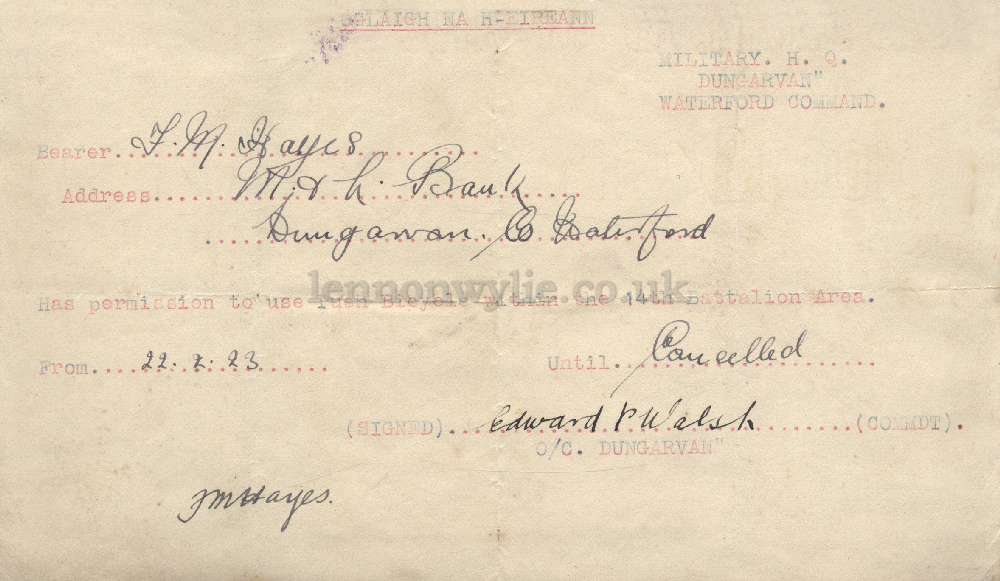 OGLAIGH NA H-EIREANN
MILITARY. H. Q.
DUNGARVAN"
WATERFORD COMMAND.
Bearer... F. M. Hayes
Address... M. & L. Bank
Dungarvan. Co Waterford
lennonwylie.co.uk
Has permission to use Push Bicycle Within the 14th Battalion Area.
From... 22. 2. 23 Until... Cancelled
(SIGNED)... Edward P Walsh ...(COMMDT).
O/C. DUNGARVAN"
FMHayes.